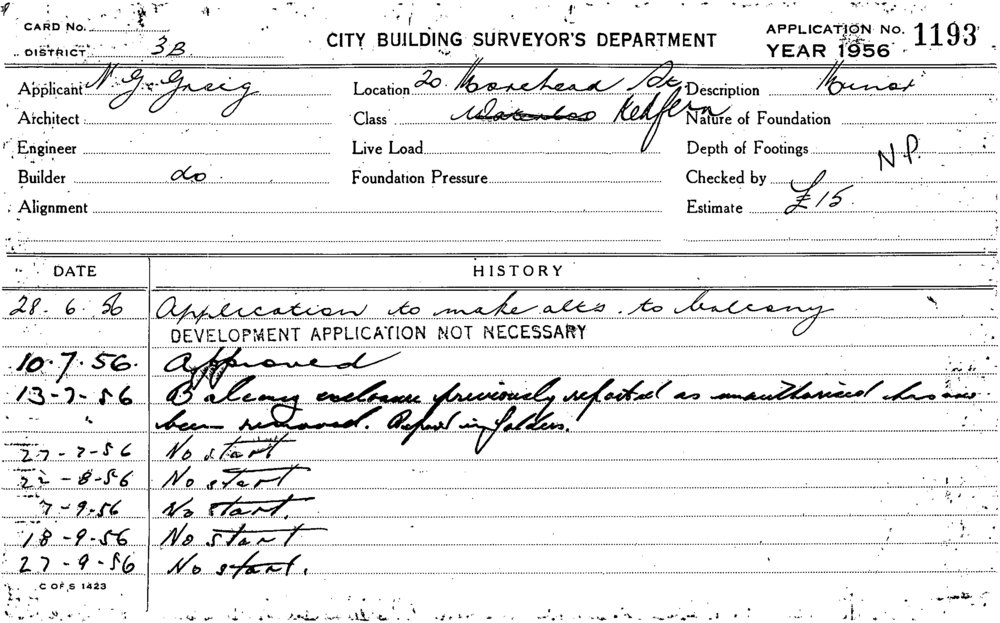 CARD No.
DISTRICT 3B
CITY BUILDING SURVEYOR'S DEPARTMENT
APPLICATION No. 1193
YEAR 1956
Applicant N. G. Greig
Location 20 Morehead St,
Description Minor
Architect
Class Waterloo Redfern
Nature of Foundation
Engineer
Live Load
Depth of Footings
N.P.
Builder do
Foundation Pressure
Checked by
Alignment
Estimate £15
DATE HISTORY
28. 6. 56 Application to make alts. to balcony
DEVELOPMENT APPLICATION NOT NECESSARY
10.7.56. Approved
13-7-56 Balcony enclosure previously reported as unauthorised has now
" been removed. Report in folders.
27-7-56 No start
22-8-56 No start
7-9-56 No start.
18-9-56 No start
27-9-56 No start.
C OF S 1423